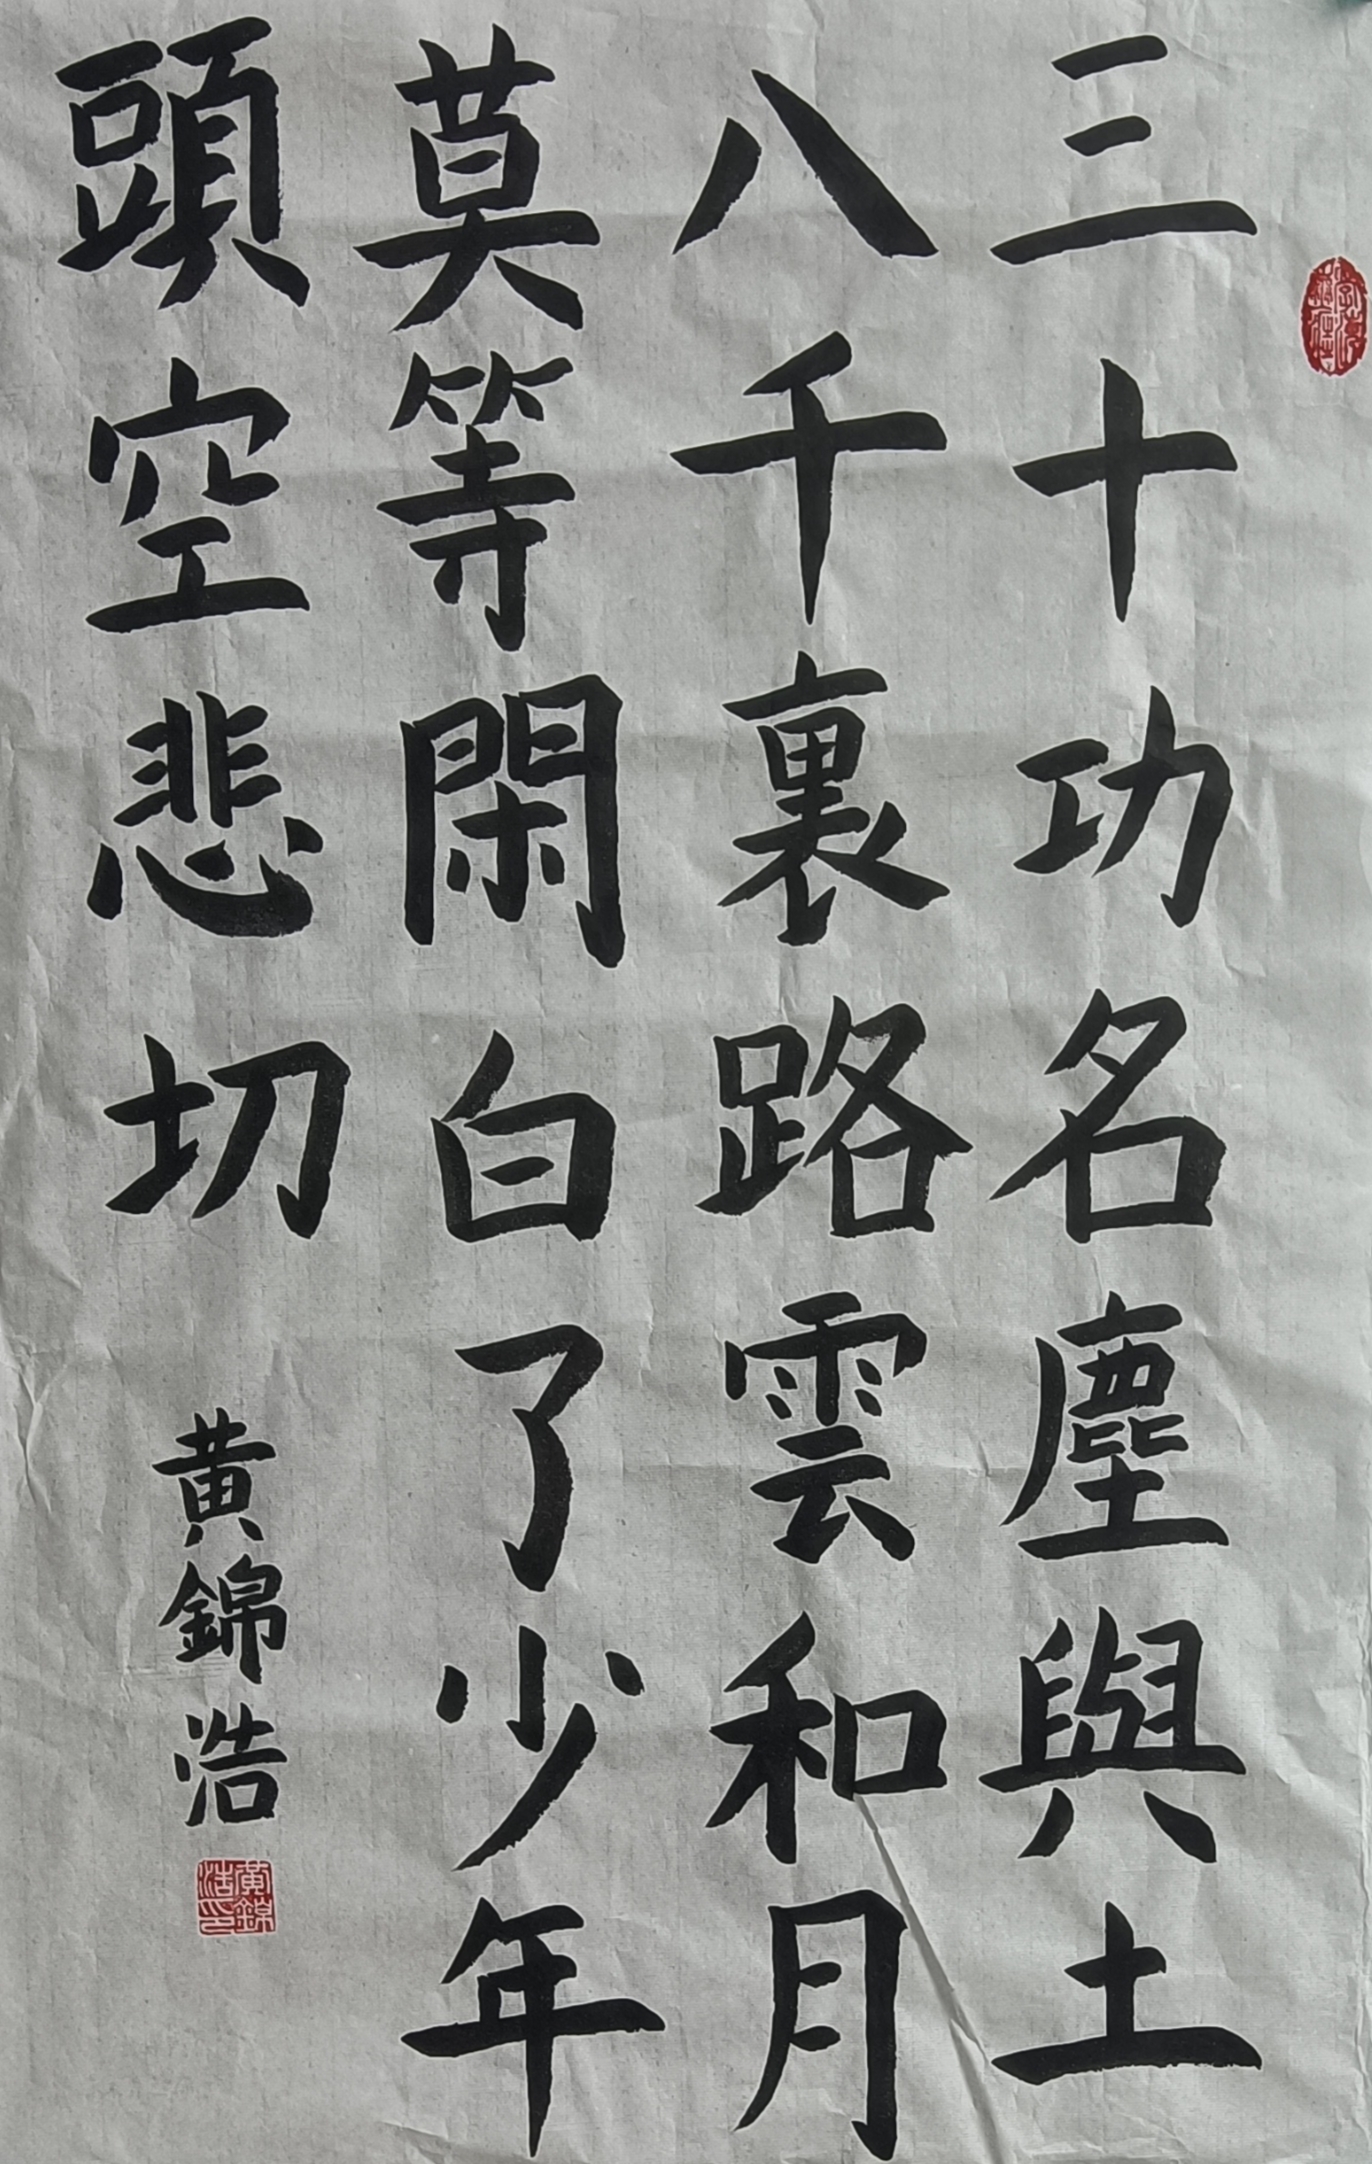 三十功名塵與土
八千裏路雲和月
莫等閑白了少年
頭空悲切
黄錦浩
黃錦浩印